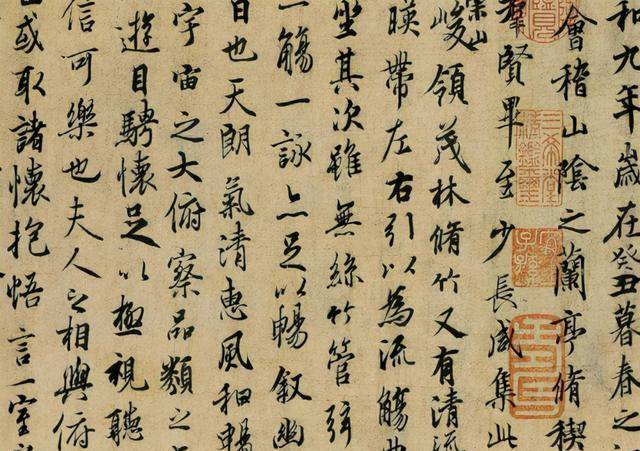 和九年歲在癸丑暮春之
會稽山陰之蘭亭脩稧
羣賢畢至少長咸集此
崇山
峻領茂林脩竹又有清流
暎帶左右引以為流觴曲
坐其次雖無絲竹管弦
一觴一詠亦足以暢叙幽
日也天朗氣清惠風和暢
宇宙之大俯察品類之
遊目騁懷足以極視聽
信可樂也夫人之相與俯
或取諸懷抱悟言一室
三希堂精鑑璽
宜子孫